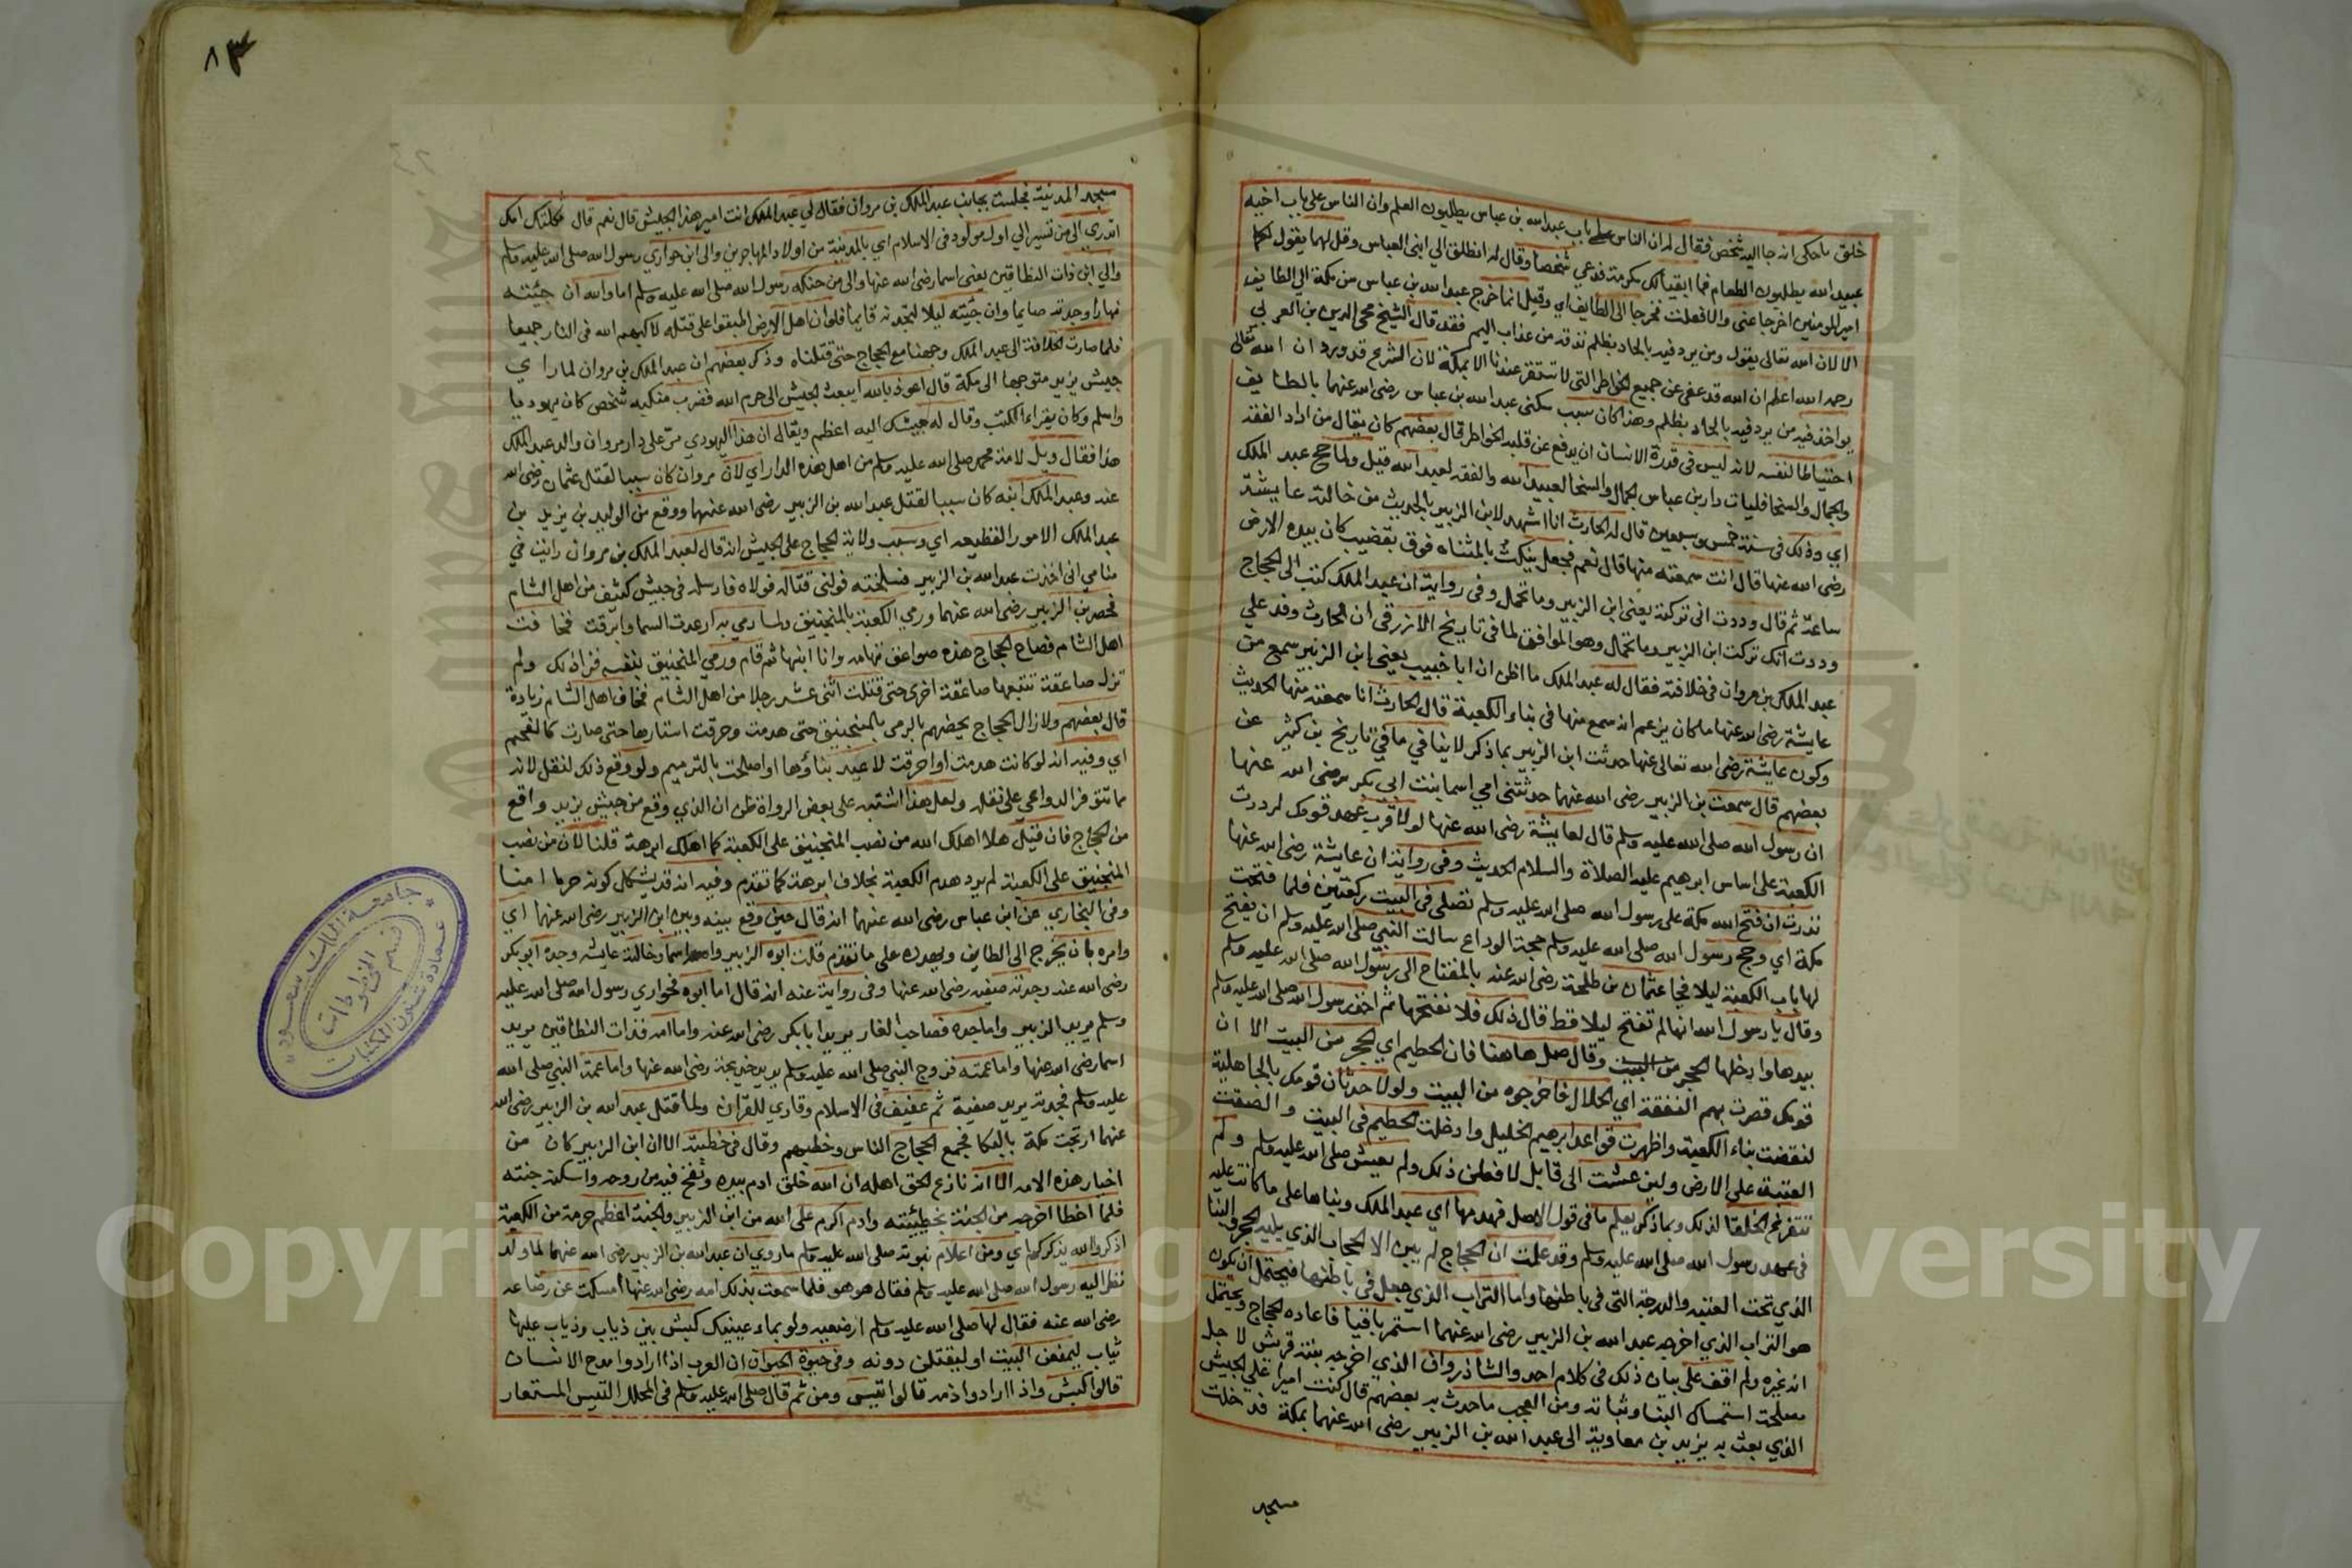 خلق ما حكى انه جا اليه شخص فقال له ان الناس على باب عبد الله بن عباس يطلبون العلم وان الناس على باب اخيه
عبيد الله يطلبون الطعام فما ابقيا لك مكرمة فدعى شخصا وقال له انطلق الى ابنى العباس وقل لهما يقول لكما
امير المومنين اخرجا عنى والا فعلت فخرجا الى الطايف اي وقيل انما خرج عبد الله بن عباس من مكة الى الطايف
الا لان الله تعالى يقول ومن يرد فيه بالحاد بظلم نذقه من عذاب اليم فقد قال الشيخ محى الدين بن العربي
رحمه الله اعلم ان الله قد عفى عن جميع الخواطر التى لا تستقر عندنا الا بمكة لان الشرع قد ورد ان الله تعالى
يواخذ فيه من يرد فيه بالحاد بظلم وهذا كان سبب سكنى عبد الله بن عباس رضى الله عنهما بالطايف
احتياطا لنفسه لانه ليس فى قدرة الانسان ان يدفع عن قلبه الخواطر قال بعضهم كان يقال من اراد الفقه
والجمال والسخا فليات دار بن عباس الجمال والسخا لعبيد الله والفقه لعبد الله قيل ولما حج عبد الملك
اي وذلك فى سنة خمس وسبعين قال له الحارث انا اشهد لابن الزبير بالحديث من خالته عايشة
رضى الله عنها قال انت سمعته منها قال نعم فجعل ينكت بالمثناه فوق بقضيب كان بيده الارض
ساعة ثم قال وددت انى تركته يعنى ابن الزبير وما تحمل وفى رواية ان عبد الملك كتب الى الحجاج
وددت انك تركت ابن الزبير وما تحمل وهو الموافق لما فى تاريخ الازرقى ان الحارث وفد على
عبد الملك بن مروان فى خلافته فقال له عبد الملك ما اظن ان ابا خبيب يعنى ابن الزبير سمع من
عايشة رضى الله عنها ما كان يزعم انه سمع منها فى بناء الكعبة قال الحارث انا سمعته منها الحديث
وكون عايشة رضى الله تعالى عنها حدثت ابن الزبير بما ذكر لا ينافي ما في تاريخ بن كثير عن
بعضهم قال سمعت بن الزبير رضى الله عنهما حدثتنى امي اسما بنت ابى بكر رضى الله عنها
ان رسول الله صلى الله عليه وسلم قال لعايشة رضى الله عنها لولا قرب عهد قومك لرددت
الكعبة على اساس ابرهيم عليه الصلاة والسلام الحديث وفى رواية ان عايشة رضى الله عنها
نذرت ان فتح الله مكة على رسول الله صلى الله عليه وسلم تصلى فى البيت ركعتين فلما فتحت
مكة اي وحج رسول الله صلى الله عليه وسلم حجة الوداع سالت النبي صلى الله عليه وسلم ان يفتح
لها باب الكعبة ليلا فجا عثمان بن طلحة رضى الله عنه بالمفتاح الى رسول الله صلى الله عليه وسلم
وقال يا رسول الله انها لم تفتح ليلا قط قال ذلك فلا نفتحها ثم اخذ رسول الله صلى الله عليه وسلم
بيدها وادخلها الحجر من البيت وقال صل هاهنا فان الحطيم اي الحجر من البيت الا ان
قومك قصرت بهم النفقة اي الحلال فاخرجوه من البيت ولولا حدثان قومك بالجاهلية
لنقضت بناء الكعبة واظهرت قواعد ابرهيم الخليل وادخلت الحطيم فى البيت والصقت
العتبة على الارض ولين عشت الى قابل لافعلن ذلك ولم يعيش صلى الله عليه وسلم ولم
تتفرغ الخلفا لذلك وبما ذكر يعلم ما فى قول الاصل فهدمها اي عبد الملك وبناها على ما كانت عليه
فى عهد رسول الله صلى الله عليه وسلم وقد علمت ان الحجاج لم يبن الا الحجاب الذي يليه الحجر والبنا
الذي تحت العتبه والدرجة التى فى باطنها واما التراب الذي جعل فى باطنها فيحتمل ان يكون
هو التراب الذي اخرجه عبد الله بن الزبير رضى الله عنهما استمر باقيا فاعاده الحجاج ويحتمل
انه غيره ولم اقف على بيان ذلك فى كلام احد والشاذروان الذي اخرجه بنته قريش لاجل
مصلحة استمساك البنا وثباته ومن العجب ما حدث به بعضهم قال كنت اميرا على الجيش
الذي بعث به يزيد بن معاوية الى عبد الله بن الزبير رضى الله عنهما بمكة فدخلت
مسجد
٨٣
مسجد المدينة فجلست بجانب عبد الملك بن مروان فقال لي عبد الملك انت امير هذا الجيش قال نعم قال ثكلتك امك
اتدري الى من تسير الي اول مولود فى الاسلام اي بالمدينة من اولاد المهاجرين والى ابن حواري رسول الله صلى الله عليه وسلم
والي ابن ذات النطاقين يعنى اسما رضى الله عنها والى من حنكه رسول الله صلى الله عليه وسلم اما والله ان جئته
نهارا وجدته صايما وان جئته ليلا لتجدنه قايما فلو ان اهل الارض اطبقوا على قتله لاكبهم الله فى النار جميعا
فلما صارت الخلافة الى عبد الملك وجهنا مع الحجاج حتى قتلناه وذكر بعضهم ان عبد الملك بن مروان لما راى
جيش يزيد متوجها الى مكة قال اعوذ بالله ايبعث الجيش الى حرم الله فضرب منكبه شخص كان يهوديا
واسلم وكان يقراء الكتب وقال له جيشك اليه اعظم ويقال ان هذا اليهودي مرّ على دار مروان والد عبد الملك
هذا فقال ويل لامة محمد صلى الله عليه وسلم من اهل هذه الدار اي لان مروان كان سببا لقتل عثمان رضى الله
عنه وعبد الملك ابنه كان سببا لقتل عبد الله بن الزبير رضى الله عنهما ووقع من الوليد بن يزيد بن
عبد الملك الامور الفظيعه اي وسبب ولاية الحجاج على الجيش انه قال لعبد الملك بن مروان رايت في
منامي انى اخذت عبد الله بن الزبير فسلخته فولنى قتاله فولاه فارسله فى جيش كثيف من اهل الشام
فحصر بن الزبير رضى الله عنهما ورمي الكعبة بالمنجنيق ولما رمي به ارعدت السما وابرقت فخافت
اهل الشام فصاح الحجاج هذه صواعق تهامه وانا ابنها ثم قام ورمي المنجنيق بنفسه فزاد ذلك ولم
تزل صاعقة تتبعها صاعقة اخرى حتى قتلت اثنى عشر رجلا من اهل الشام فخاف اهل الشام زيادة
قال بعضهم ولا زال الحجاج يحضهم بالرمى بالمنجنيق حتى هدمت وحرقت استارها حتى صارت كالفحم
اي وفيه انه لو كانت هدمت او احرقت لاعيد بناؤها او اصلحت بالترميم ولو وقع ذلك لنقل لانه
مما تتوفر الدواعي على نقله ولعل هذا اشتبه على بعض الرواة ظن ان الذي وقع من جيش يزيد واقع
من الحجاج فان قيل هلا اهلك الله من نصب المنجنيق على الكعبة كما اهلك ابرهة قلنا لان من نصب
المنجنيق على الكعبة لم يرد هدم الكعبة بخلاف ابرهة كما تقدم وفيه انه قد يشكل كونه حرما امنا
وفى البخاري عن ابن عباس رضى الله عنهما انه قال حين وقع بينه وبين ابن الزبير رضى الله عنهما اي
وامره بان يخرج الى الطايف ويهدده على ما تقدم قلت ابوه الزبير وامه اسما وخالته عايشه وجده ابو بكر
رضى الله عنه وجدته صفيه رضى الله عنها وفى رواية عنه انه قال اما ابوه فحواري رسول الله صلى الله عليه
وسلم يريد الزبير واما جده فصاحب الغار يريد ابا بكر رضى الله عنه واما امه فذات النطاقين يريد
اسما رضى الله عنها واما عمته فزوج النبي صلى الله عليه وسلم يريد خديجة رضى الله عنها واما عمة النبي صلى الله
عليه وسلم فجدته يريد صفية ثم عفيف فى الاسلام وقاري للقران ولما قتل عبد الله بن الزبير رضى الله
عنهما ارتجت مكة بالبكا فجمع الحجاج الناس وخطبهم وقال فى خطبته الا ان ابن الزبير كان من
اخيار هذه الامه الا انه نازع الحق اهله ان الله خلق ادم بيده ونفخ فيه من روحه واسكنه جنته
فلما اخطا اخرجه من الجنة بخطيئته وادم اكرم على الله من ابن الزبير والجنة اعظم حرمة من الكعبة
اذكروا الله يذكركم اي ومن اعلام نبوته صلى الله عليه وسلم ما روي ان عبد الله بن الزبير رضى الله عنهما لما ولد
نظر اليه رسول الله صلى الله عليه وسلم فقال هو هو فلما سمعت بذلك امه رضى الله عنها امسكت عن رضاعه
رضى الله عنه فقال لها صلى الله عليه وسلم ارضعيه ولو بماء عينيك كبش بين ذياب وذياب عليها
ثياب ليمنعن البيت او ليقتلن دونه وفى حيوة الحيوان ان العرب اذا ارادوا مدح الانسان
قالوا كبش واذا ارادوا ذمه قالوا تيس ومن ثم قال صلى الله عليه وسلم فى المحلل التيس المستعار
جامعة الملك سعود
عمادة شئون المكتبات
قسم المخطوطات
Copyright © King Saud University